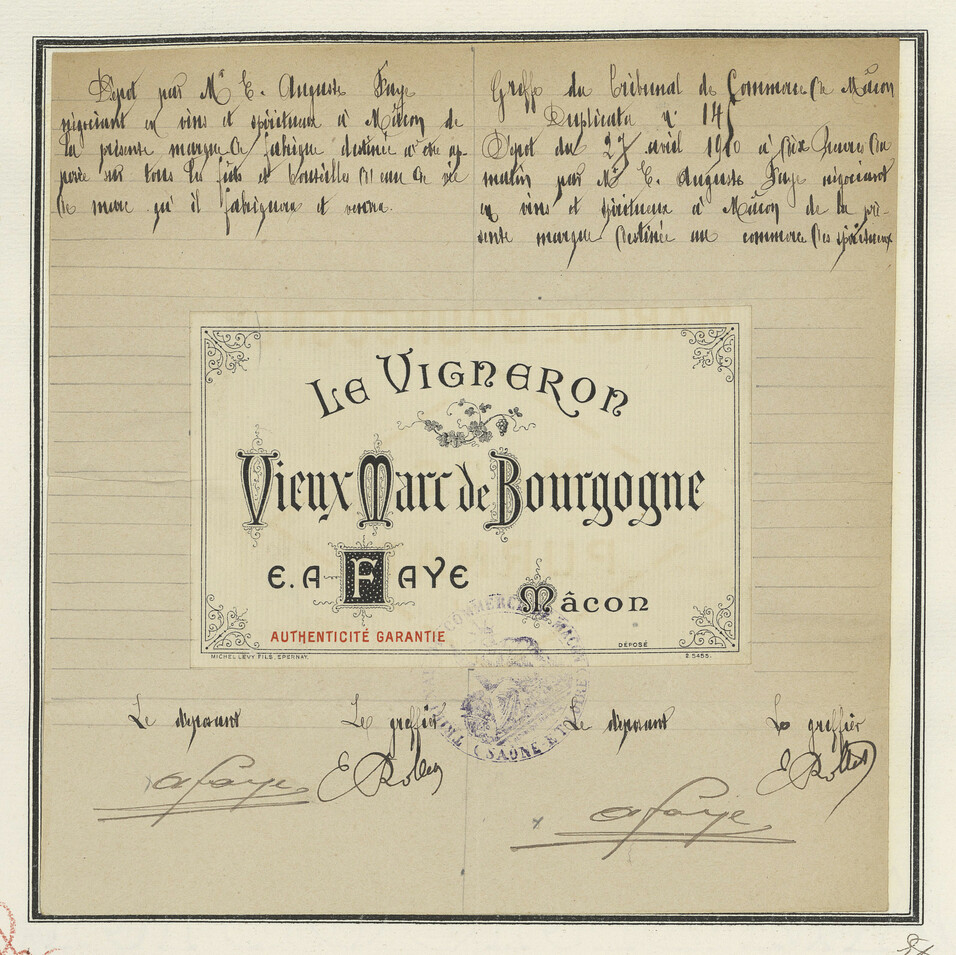 Dépot par Mr E. Auguste Faye
négociant en vins et spiritueux à Mâcon de
la présente marque de fabrique destinée à être ap-
posée sur tous les fûts et bouteilles d'eau de vie
de marc qu'il fabriquera et vendra.
Greffe du Tribunal de Commerce de Mâcon
Duplicata n° 145
Dépot du 27 avril 1910 à dix heures du
matin par Mr E. Auguste Faye négociant
en vins et spiritueux à Mâcon de la pré-
sente marque destinée au commerce des spiritueux
LE VIGNERON
Vieux Marc de Bourgogne
E. A FAYE
MÂCON
AUTHENTICITÉ GARANTIE
DÉPOSÉ
MICHEL LEVY FILS, EPERNAY.
2.5455.
COMMERCE DE MACON
(SAÔNE ET LOIRE)
Le déposant
Le greffier
Le déposant
Le greffier
A Faye
E Rollet
A Faye
E Rollet